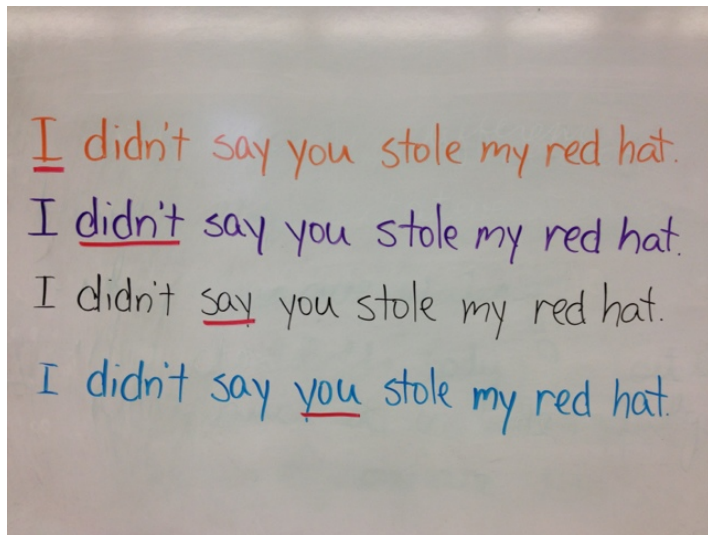 I didn't say you stole my red hat.
I didn't say you stole my red hat.
I didn't say you stole my red hat.
I didn't say you stole my red hat.